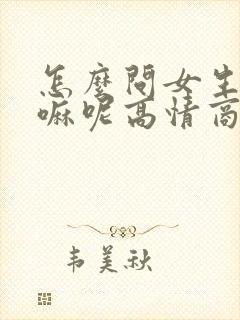 怎麼問女生
嘛呢高情商
韦美秋